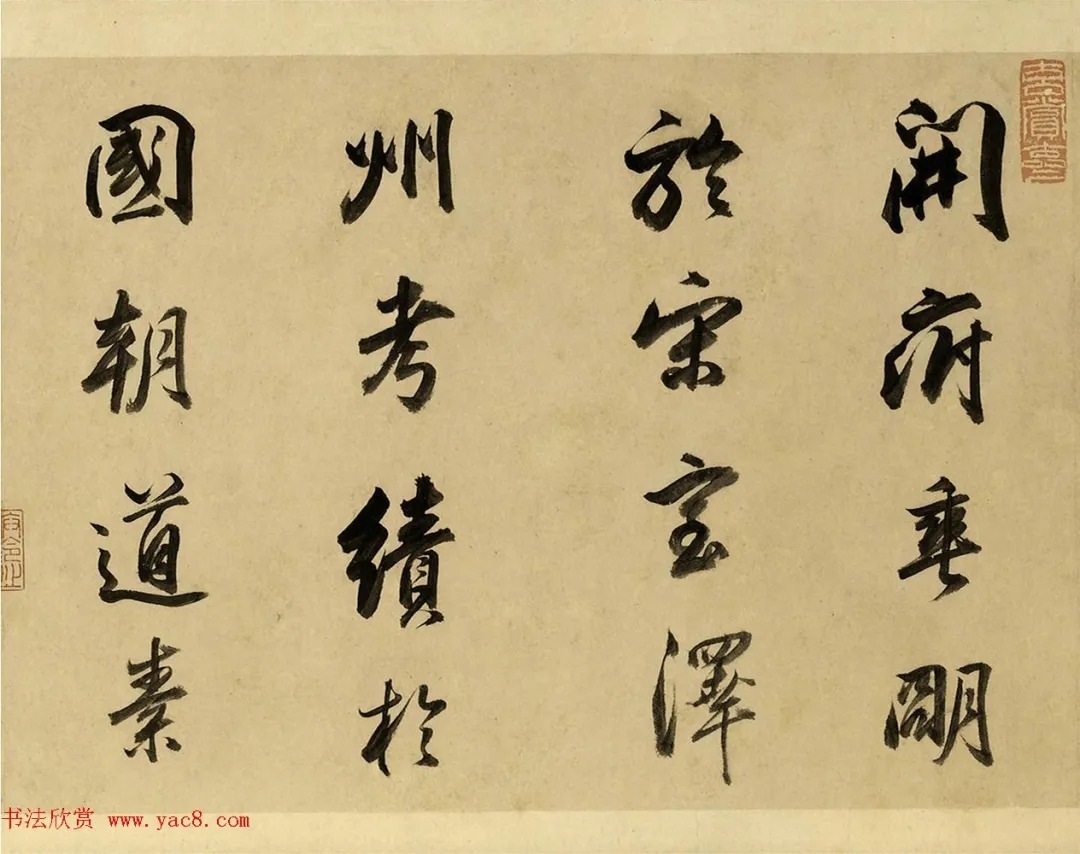 開府垂明
於宋室澤
州考績於
國朝道素
书法欣赏 www.yac8.com